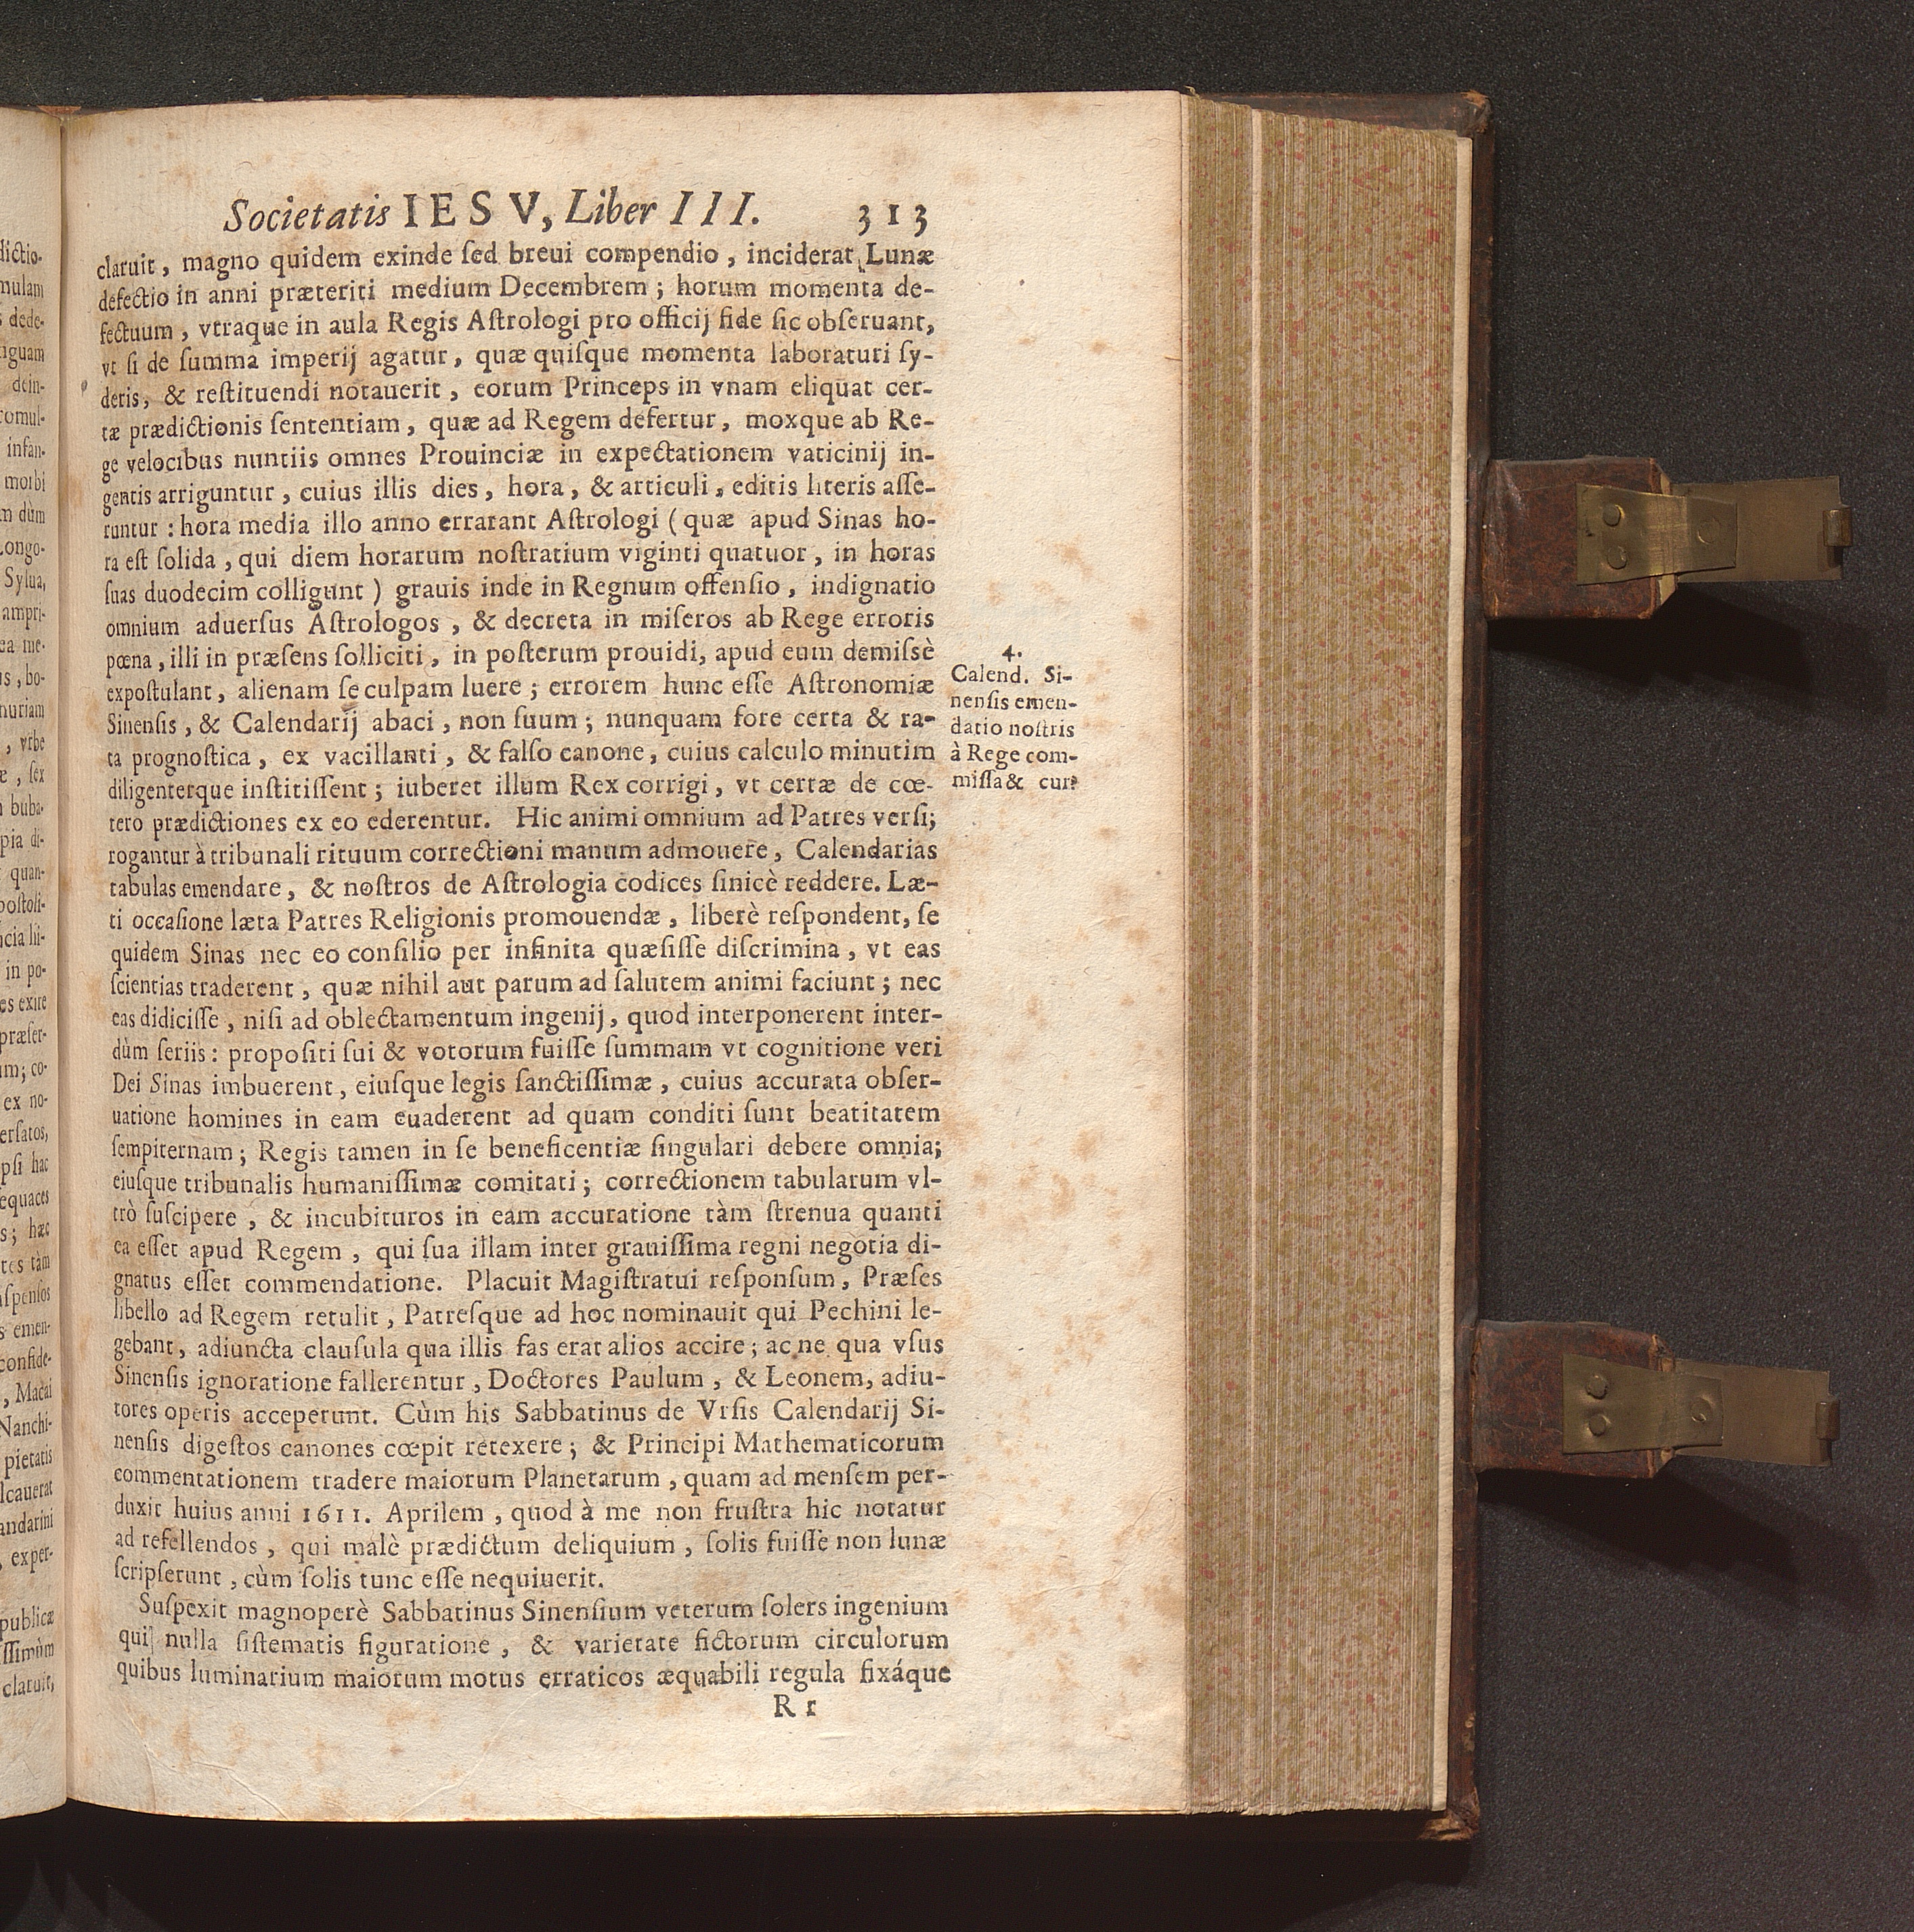 Societatis IESV, Liber III. 313
claruit, magno quidem exinde ſed breui compendio, inciderat Lunæ
defectio in anni præteriti medium Decembrem; horum momenta de-
fectuum, vtraque in aula Regis Aſtrologi pro officij fide ſic obſeruant,
vt ſi de ſumma imperij agatur, quæ quiſque momenta laboraturi ſy-
deris, & reſtituendi notauerit, eorum Princeps in vnam eliquat cer-
tæ prædictionis ſententiam, quæ ad Regem defertur, moxque ab Re-
ge velocibus nuntiis omnes Prouinciæ in expectationem vaticinij in-
gentis arriguntur, cuius illis dies, hora, & articuli, editis literis aſſe-
runtur: hora media illo anno errarant Aſtrologi (quæ apud Sinas ho-
ra eſt ſolida, qui diem horarum noſtratium viginti quatuor, in horas
ſuas duodecim colligunt) grauis inde in Regnum offenſio, indignatio
omnium aduerſus Aſtrologos, & decreta in miſeros ab Rege erroris
pœna, illi in præſens ſolliciti, in poſterum prouidi, apud eum demiſsè
expoſtulant, alienam ſe culpam luere; errorem hunc eſſe Aſtronomiæ
Sinenſis, & Calendarij abaci, non ſuum; nunquam fore certa & ra-
ta prognoſtica, ex vacillanti, & falſo canone, cuius calculo minutim
diligenterque inſtitiſſent; iuberet illum Rex corrigi, vt certæ de cœ-
tero prædictiones ex eo ederentur. Hic animi omnium ad Patres verſi;
rogantur à tribunali rituum correctioni manum admouere, Calendarias
tabulas emendare, & noſtros de Aſtrologia codices ſinicè reddere. Læ-
ti occaſione læta Patres Religionis promouendæ, liberè reſpondent, ſe
quidem Sinas nec eo conſilio per infinita quæſiſſe diſcrimina, vt eas
ſcientias traderent, quæ nihil aut parum ad ſalutem animi faciunt; nec
eas didiciſſe, niſi ad oblectamentum ingenij, quod interponerent inter-
dùm ſeriis: propoſiti ſui & votorum fuiſſe ſummam vt cognitione veri
Dei Sinas imbuerent, eiuſque legis ſanctiſſimæ, cuius accurata obſer-
uatione homines in eam euaderent ad quam conditi ſunt beatitatem
ſempiternam; Regis tamen in ſe beneficentiæ ſingulari debere omnia;
eiuſque tribunalis humaniſſimæ comitati; correctionem tabularum vl-
trò ſuſcipere, & incubituros in eam accuratione tàm ſtrenua quanti
ea eſſet apud Regem, qui ſua illam inter grauiſſima regni negotia di-
gnatus eſſet commendatione. Placuit Magiſtratui reſponſum, Præſes
libello ad Regem retulit, Patreſque ad hoc nominauit qui Pechini le-
gebant, adiuncta clauſula qua illis fas erat alios accire; ac ne qua vſus
Sinenſis ignoratione fallerentur, Doctores Paulum, & Leonem, adiu-
tores operis acceperunt. Cùm his Sabbatinus de Vrſis Calendarij Si-
nenſis digeſtos canones cœpit retexere; & Principi Mathematicorum
commentationem tradere maiorum Planetarum, quam ad menſem per-
duxit huius anni 1611. Aprilem, quod à me non fruſtra hic notatur
ad refellendos, qui malè prædictum deliquium, ſolis fuiſſe non lunæ
ſcripſerunt, cùm ſolis tunc eſſe nequiuerit.
Suſpexit magnoperè Sabbatinus Sinenſium veterum ſolers ingenium
qui nulla ſiſtematis figuratione, & varietate fictorum circulorum
quibus luminarium maiorum motus erraticos æquabili regula fixáque
R r
4.
Calend. Si-
nenſis emen-
datio noſtris
à Rege com-
miſſa & cur?
dictio-
mulam
dede-
iguam
dein-
romul-
infan-
morbi
m dùm
Longo-
Sylua,
ampri-
ea me-
is, bo-
nuriam
, vrbe
æ, ſex
buba-
pia di-
quan-
poſtoli-
ncia lii-
in po-
es exire
præſer-
um; co-
ex no-
erſatos,
pſi hac
equaces
s; hæc
tes tàm
uſpenſos
s emen-
confide-
, Macai
Nanchi-
pietatis
lcauerat
andarini
, exper-
publicæ
iſſimùm
claruit,